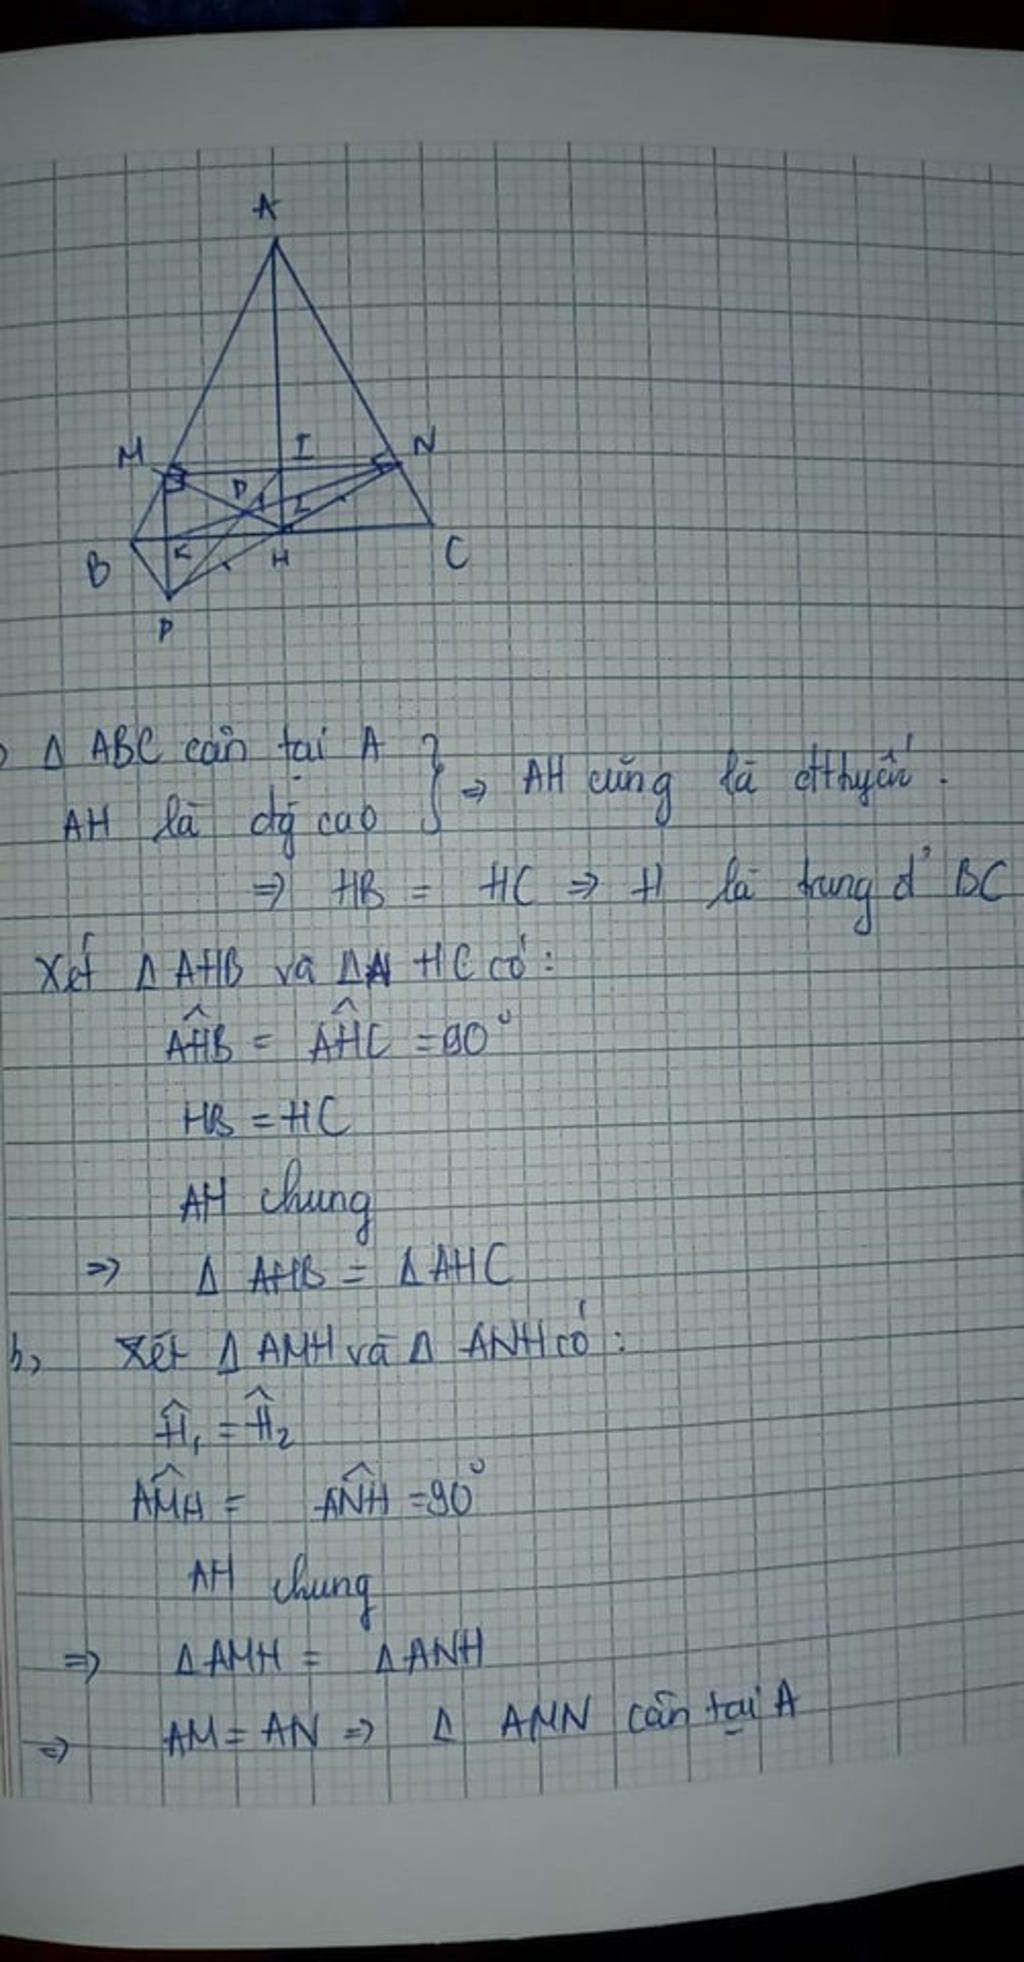 A
M
I
N
D
1
2
B
K
H
C
P
Δ ABC cân tại A
AH là đg cao } => AH cũng là đtthyến.
=> HB = HC => H là trung đ' BC
Xét Δ AHB và ΔA HC có:
AHB = AHC = 90°
HB = HC
AH chung
=> Δ AHB = ΔAHC
b, Xét Δ AMH và Δ ANH có:
Ĥ₁ = Ĥ₂
AMH = ANH = 90°
AH chung
=> ΔAMH = ΔANH
=> AM = AN => Δ AMN cân tại A